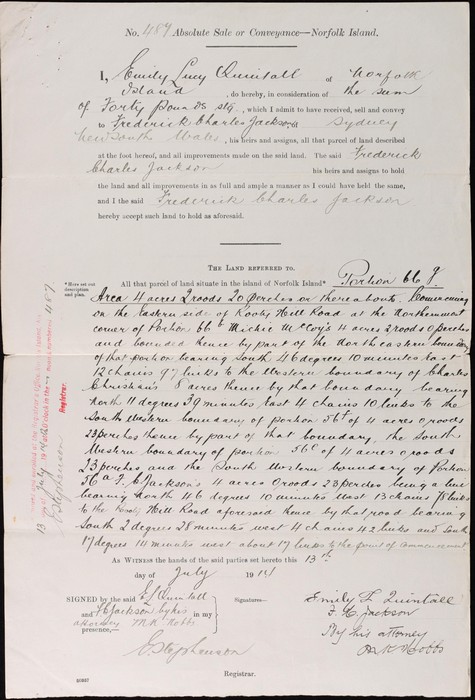 No. 489 Absolute Sale or Conveyance—Norfolk Island.
I, Emily Lucy Quintall of Norfolk
Island, do hereby, in consideration of the sum
of Forty pounds stg, which I admit to have received, sell and convey
to Frederick Charles Jackson of Sydney
New South Wales, his heirs and assigns, all that parcel of land described
at the foot hereof, and all improvements made on the said land. The said Frederick
Charles Jackson his heirs and assigns to hold
the land and all improvements in as full and ample a manner as I could have held the same,
and I the said Frederick Charles Jackson
hereby accept such land to hold as aforesaid.
THE LAND REFERRED TO.
* Here set out description and plan.
All that parcel of land situate in the island of Norfolk Island* Portion 66 g
Area 4 acres 2 roods 20 perches or thereabouts. Commencing
on the Eastern side of Rooty Hill Road at the Northernmost
corner of Portion 66 b Mickie McCoy's 4 acres 2 roods 0 perches
and bounded thence by part of the Northeastern boundary
of that portion bearing South 46 degrees 10 minutes East
12 chains 97 links to the Western boundary of Charles
Christian's 8 acres thence by that boundary bearing
North 11 degrees 39 minutes East 4 chains 10 links to the
South Western boundary of portion 56 d of 4 acres 0 roods
23 perches thence by part of that boundary, the South
Western boundary of portion 56 c of 4 acres 0 roods
23 perches and the South Western boundary of Portion
56 a F. C. Jackson's 4 acres 0 roods 23 perches being a line
bearing North 46 degrees 10 minutes West 13 chains 78 links
to the Rooty Hill Road aforesaid thence by that road bearing
South 2 degrees 28 minutes West 4 chains 42 links and South
17 degrees 14 minutes West about 17 links to the point of commencement
AS WITNESS the hands of the said parties set hereto this 13th
day of July 19
SIGNED by the said E L Quintall
and F C Jackson by his
attorney M. R. Hobbs in my
presence,—
Signatures—
Emily L Quintall
F. C. Jackson
By his attorney
M. R. Hobbs
C Stephenson
Registrar.
13 July
489
Registrar.
C Stephenson